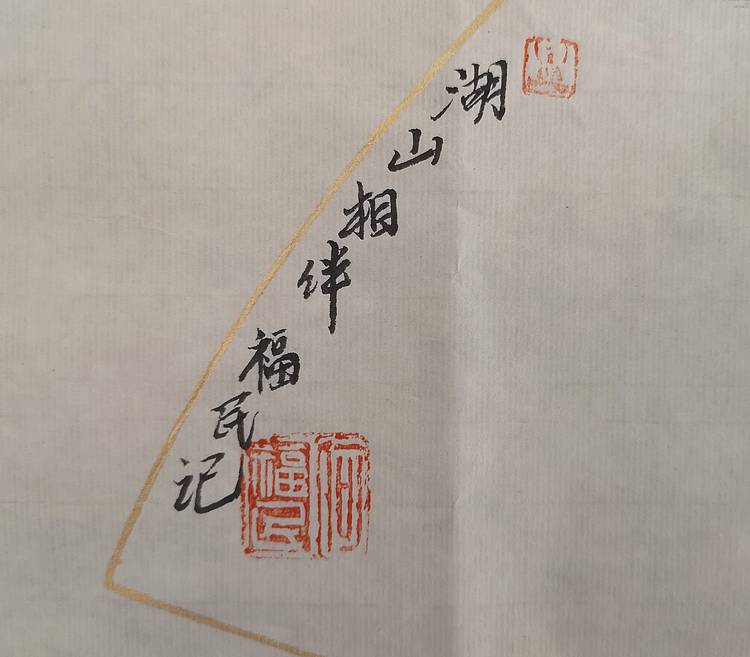 湖山相绊
福民记
何福民